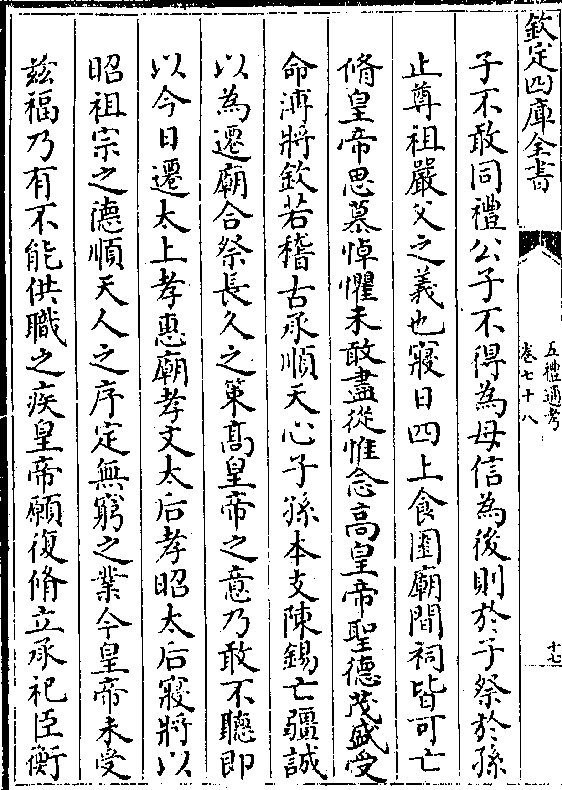 欽定四庫全書
五禮通考
卷七十八
十七
子不敢同禮公子不得為母信為後則於子祭於孫
止尊祖嚴父之義也寢日四上食園廟間祠皆可亡
脩皇帝思慕悼懼未敢盡從惟念高皇帝聖德茂盛受
命溥將欽若稽古承順天心子孫本支陳錫亡疆誠
以為遷廟合祭長久之策高皇帝之意乃敢不聽即
以今日遷太上孝惠廟孝文太后孝昭太后寢將以
昭祖宗之德順天人之序定無窮之業今皇帝未受
兹福乃有不能供職之疾皇帝願復脩立承祀臣衡